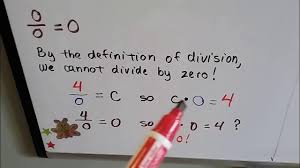 0/0 = 0
By the definition of division,
we cannot divide by zero!
4/0 = C so C • 0 = 4
4/0 = 0 so • 0 = 4 ?
0!